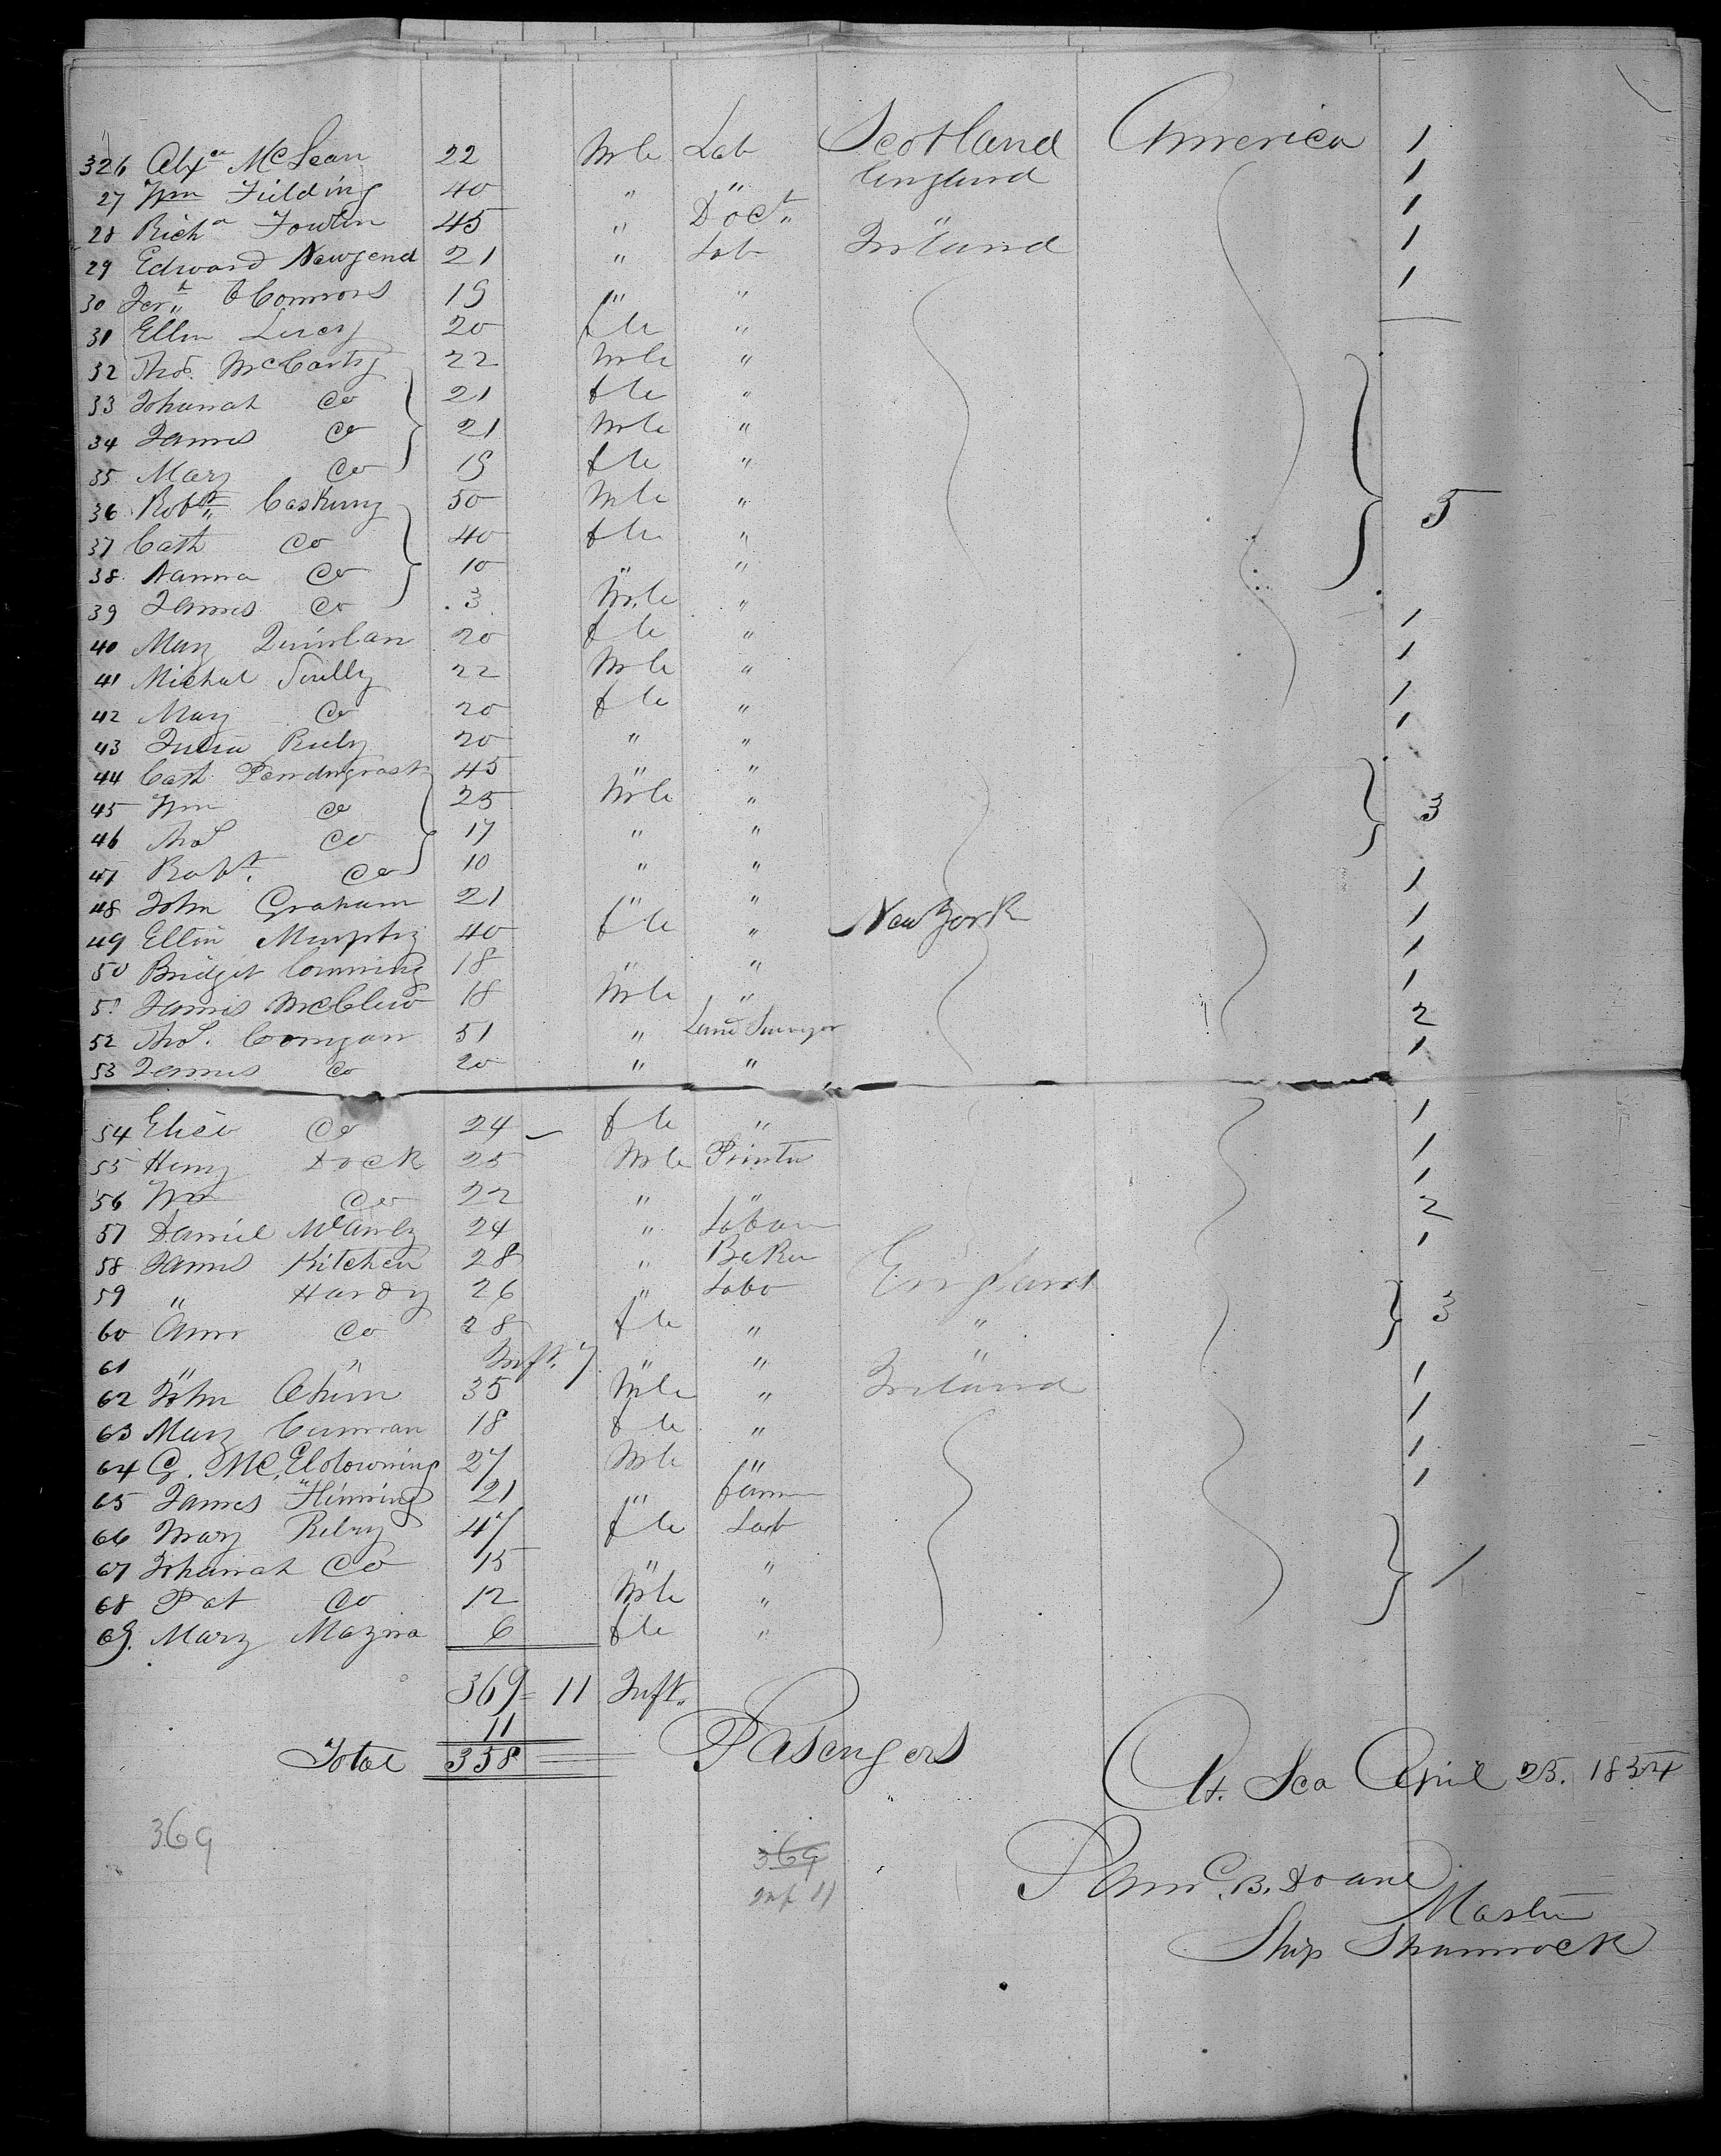 326 Alx^r McLean 22 Mle Lab Scotland America 1
27 Wm Fielding 40 " " England 1
28 Rich^d 45 " Doct " 1
29 Edward Newgend 21 " Lab Ireland 1
30 Jer^h OConnors 19 " " 1
31 Ellen 20 fle "
32 Thos. McCarty 22 Mle "
33 Johanah Do 21 fle "
34 James Do 21 Mle "
35 Mary Do 19 fle "
36 Robt 50 Mle " 5
37 Cath Do 40 fle "
38 Nanna Do 10 " "
39 James Do 3 Mle "
40 Mary Quinlan 20 fle " 1
41 Michal Scully 22 Mle " 1
42 Mary Do 20 fle " 1
43 Julia 20 " " 1
44 Cath Pendergrast 45 " "
45 Wm Do 25 Mle " 3
46 Thos Do 17 " "
47 Robt. Do 10 " "
48 John Graham 21 " " 1
49 Ellin Murphy 40 fle " New York 1
50 Bridget 18 " " 1
51 James 18 Mle " 1
52 Thos. Corrigan 51 " Land Surveyor 2
53 James Do 20 " " 1
54 Do 24 fle " 1
55 Henry Dock 25 Mle Printer 1
56 Wm Do 22 " " 1
57 Daniel 24 " 2
58 James Kitchen 28 " Baker 1
59 " Hardy 26 " Labo England
60 Ann Do 28 fle " " 3
61 " " Inft. 7 " " "
62 John 35 Mle " Ireland 1
63 Mary 18 fle " 1
64 27 Mle " 1
65 James 21 " farm 1
66 Mary 47 fle Lab
67 Johanah Do 15 " " 1
68 Pat Do 12 Mle "
69. Mary 6 fle "
369 = 11 Inft.
11
Total 358 Pasengers
At Sea April 25. 1834
369
369
inf 11
C. B. Doane
Master
Ship Shamrock